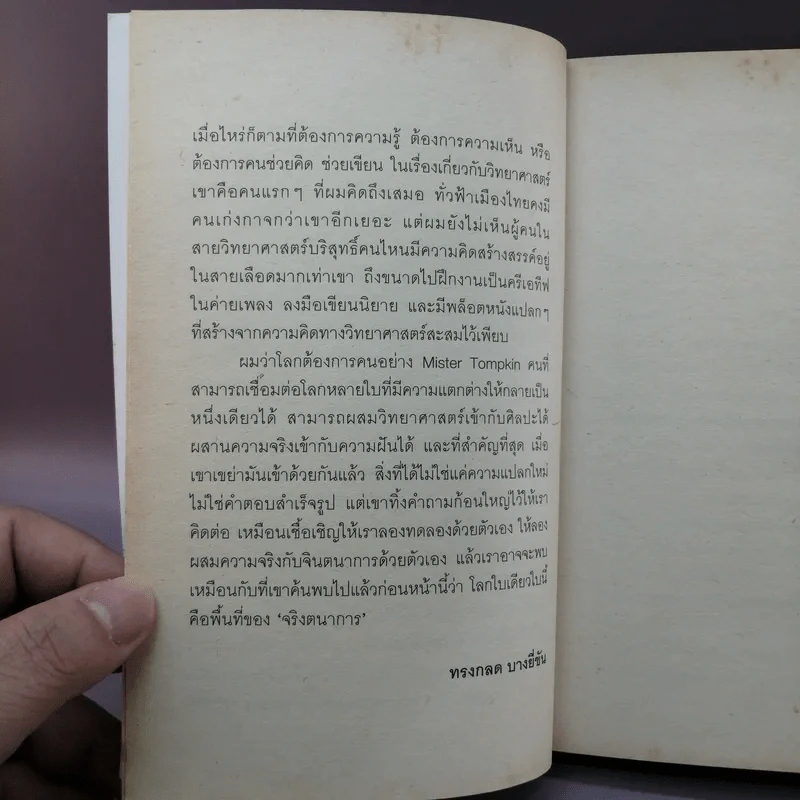 เมื่อไหร่ก็ตามที่ต้องการความรู้ ต้องการความเห็น หรือ
ต้องการคนช่วยคิด ช่วยเขียน ในเรื่องเกี่ยวกับวิทยาศาสตร์
เขาคือคนแรกๆ ที่ผมคิดถึงเสมอ ทั่วฟ้าเมืองไทยคงมี
คนเก่งกาจกว่าเขาอีกเยอะ แต่ผมยังไม่เห็นผู้คนใน
สายวิทยาศาสตร์บริสุทธิ์คนไหนมีความคิดสร้างสรรค์อยู่
ในสายเลือดมากเท่าเขา ถึงขนาดไปฝึกงานเป็นครีเอทีฟ
ในค่ายเพลง ลงมือเขียนนิยาย และมีพล็อตหนังแปลกๆ
ที่สร้างจากความคิดทางวิทยาศาสตร์สะสมไว้เพียบ
ผมว่าโลกต้องการคนอย่าง Mister Tompkin คนที่
สามารถเชื่อมต่อโลกหลายใบที่มีความแตกต่างให้กลายเป็น
หนึ่งเดียวได้ สามารถผสมวิทยาศาสตร์เข้ากับศิลปะได้
ผสานความจริงเข้ากับความฝันได้ และที่สำคัญที่สุด เมื่อ
เขาเขย่ามันเข้าด้วยกันแล้ว สิ่งที่ได้ไม่ใช่แค่ความแปลกใหม่
ไม่ใช่คำตอบสำเร็จรูป แต่เขาทิ้งคำถามก้อนใหญ่ไว้ให้เรา
คิดต่อ เหมือนเชื้อเชิญให้เราลองทดลองด้วยตัวเอง ให้ลอง
ผสมความจริงกับจินตนาการด้วยตัวเอง แล้วเราอาจจะพบ
เหมือนกับที่เขาค้นพบไปแล้วก่อนหน้านี้ว่า โลกใบเดียวใบนี้
คือพื้นที่ของ ‘จริงตนาการ’
ทรงกลด บางยี่ขัน